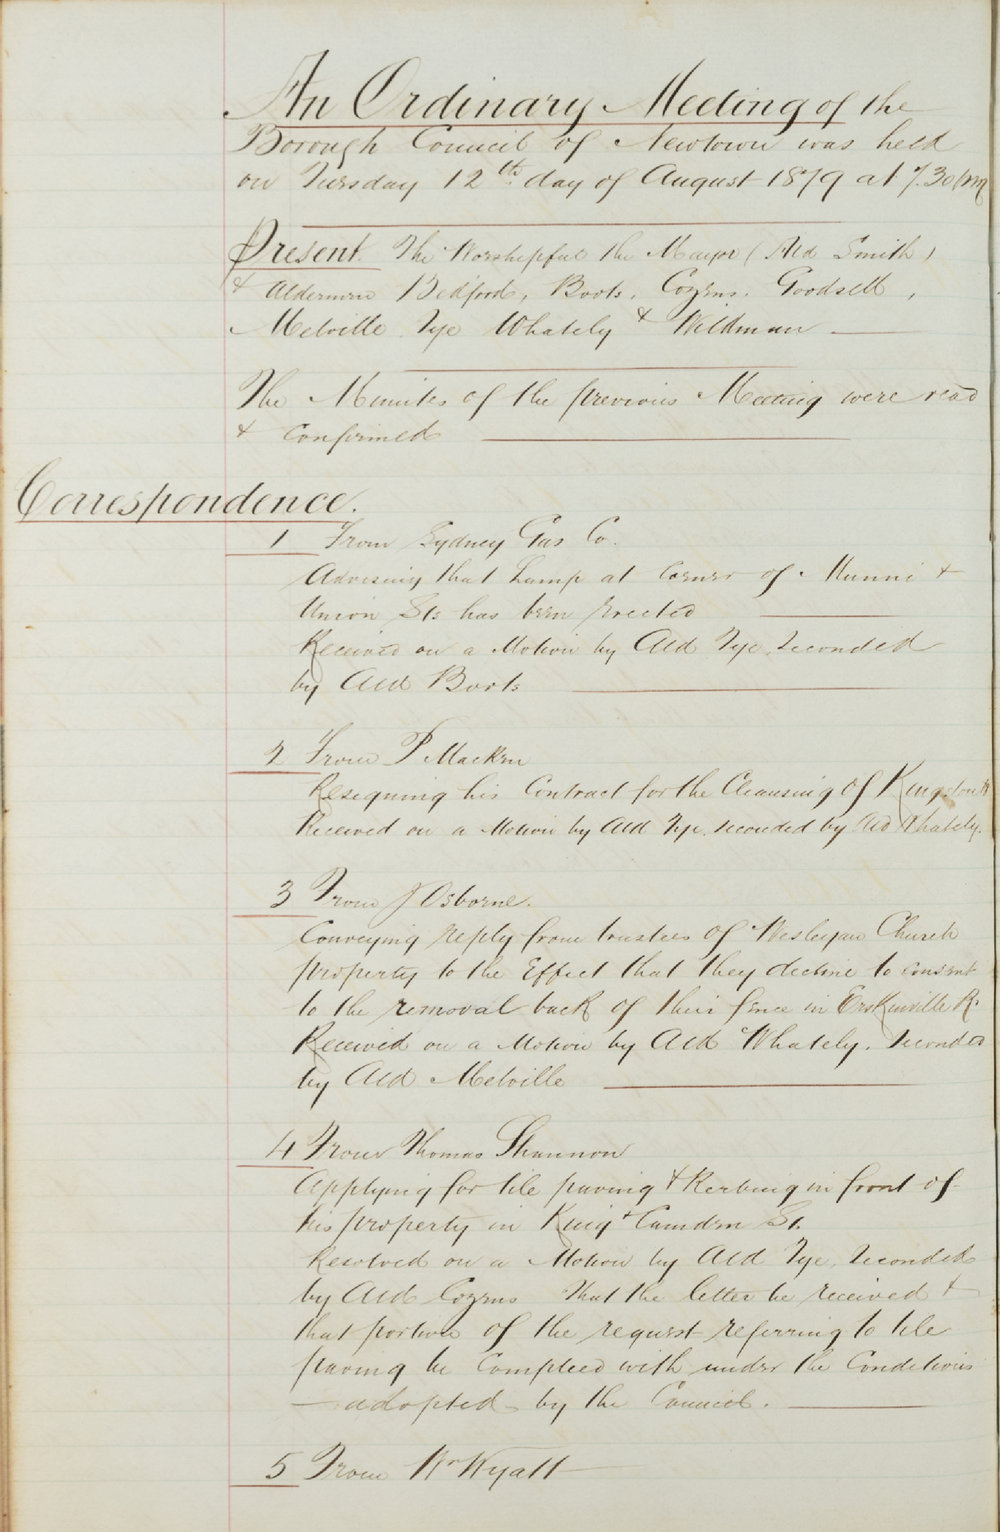 An Ordinary Meeting of the
Borough Council of Newtown was held
on Tuesday 12th day of August 1879 at 7.30 pm
Present The Worshipful the Mayor (Ald Smith)
& Aldermen Bedford, Boots, Cozens, Goodsell,
Melville Tye Whately & Wildman
The Minutes of the previous Meeting were read
& confirmed
Correspondence.
1 From Sydney Gas Co.
Advising that Lamp at Corner of &
Union Sts has been Erected
Received on a Motion by Ald Tye, Seconded
by Ald Boots
2 From P Macken
Resigning his Contract for the Cleansing of Kingston
Received on a Motion by Ald Tye, seconded by Ald Whately.
3 From J Osborne.
Conveying reply from trustees of Wesleyan Church
property to the Effect that they decline to consent
to the removal back of their fence in Erskinville R.
Received on a Motion by Ald Whately. Seconded
by Ald Melville
4 From Thomas Shannon
Applying for tile paving & Kerbing in front of
his property in King & Camden St.
Resolved on a Motion by Ald Tye, Seconded
by Ald Cozens That the letter be received &
that portion of the request referring to tile
paving be complied with under the Conditions
adopted by the Council.
5 From Wm Wyatt